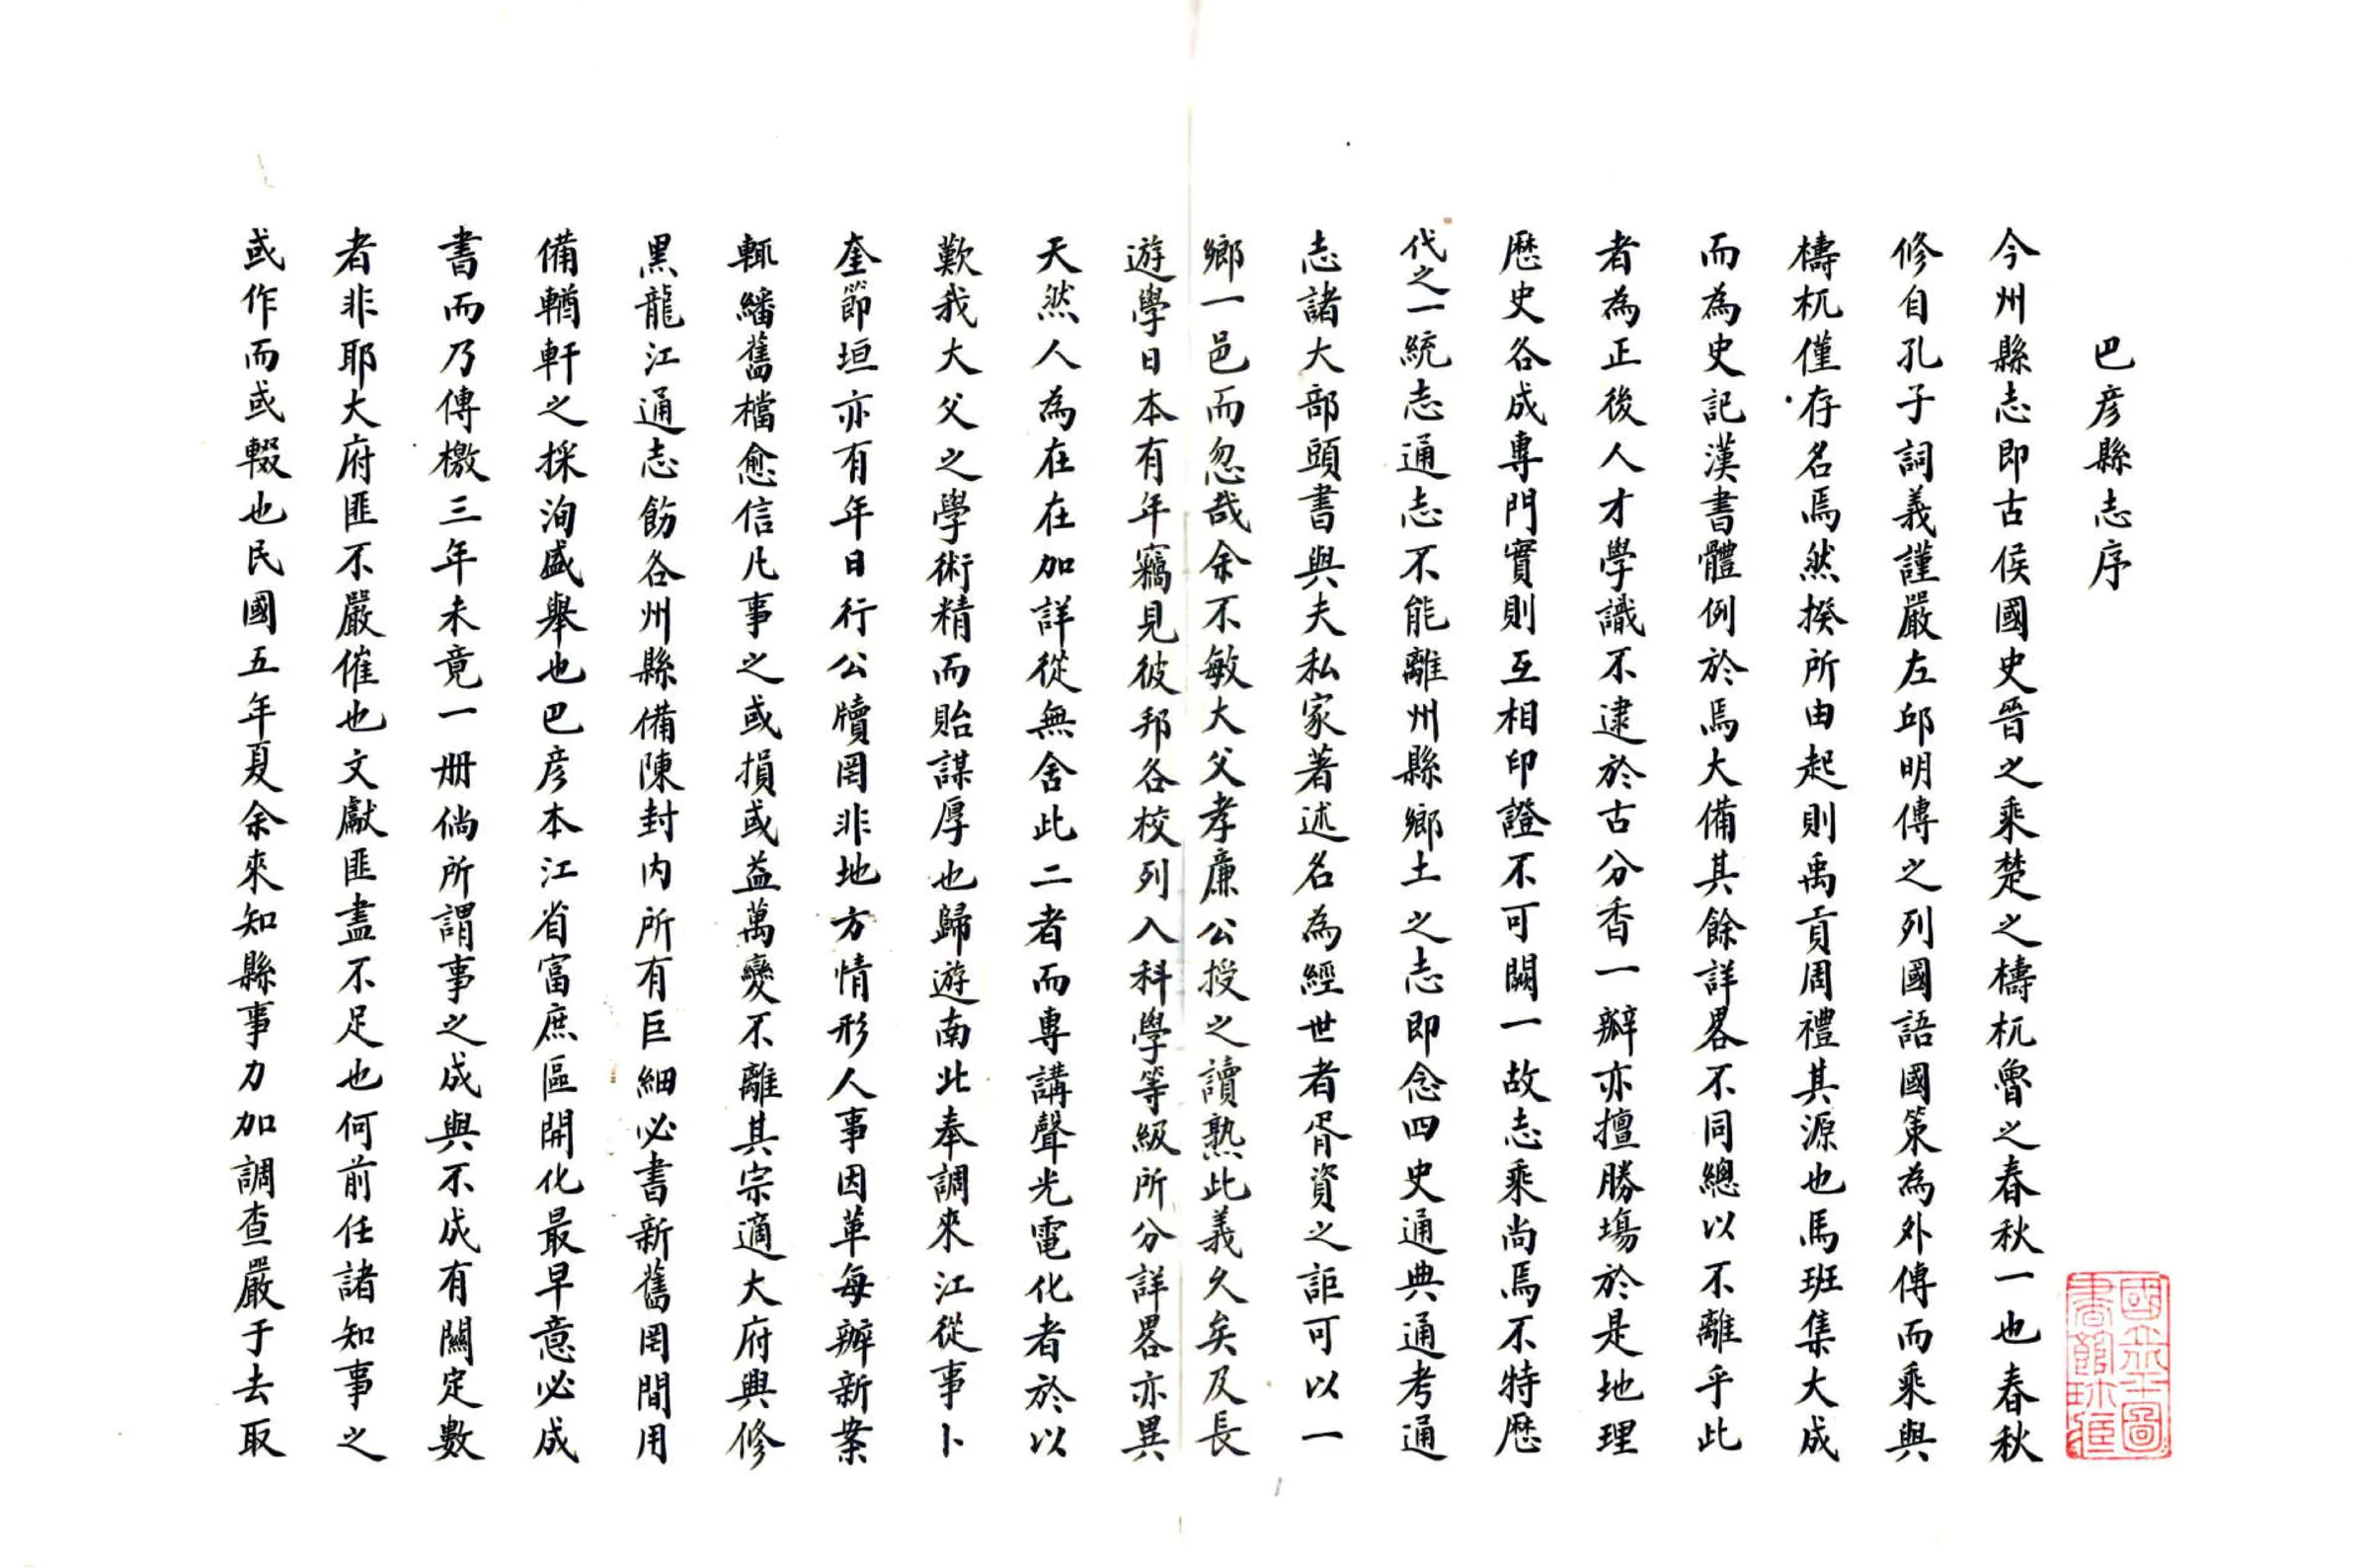 巴彥縣志序
今州縣志即古侯國史晉之乘楚之檮杌魯之春秋一也春秋
修自孔子詞義謹嚴左邱明傳之列國語國策為外傳而乘與
檮杌僅存名焉然揆所由起則禹貢周禮其源也馬班集大成
而為史記漢書體例於焉大備其餘詳畧不同總以不離乎此
者為正後人才學識不逮於古分香一瓣亦擅勝場於是地理
歷史各成專門實則互相印證不可闕一故志乘尚焉不特歷
代之一統志通志不能離州縣鄉土之志即念四史通典通考通
志諸大部頭書與夫私家著述名為經世者胥資之詎可以一
鄉一邑而忽哉余不敏大父孝廉公授之讀熟此義久矣及長
遊學日本有年竊見彼邦各校列入科學等級所分詳畧亦異
天然人為在在加詳從無舍此二者而專講聲光電化者於以
歎我大父之學術精而貽謀厚也歸遊南北奉調來江從事卜
奎節垣亦有年日行公牘罔非地方情形人事因革每辦新案
輒繙舊檔愈信凡事之或損或益萬變不離其宗適大府興修
黑龍江通志飭各州縣備陳封内所有巨細必書新舊罔間用
備輶軒之採洵盛舉也巴彥本江省富庶區開化最早意必成
書而乃傳檄三年未竟一册倘所謂事之成與不成有關定數
者非耶大府匪不嚴催也文獻匪盡不足也何前任諸知事之
或作而或輟也民國五年夏余來知縣事力加調查嚴于去取
國立北平圖
書館珍藏